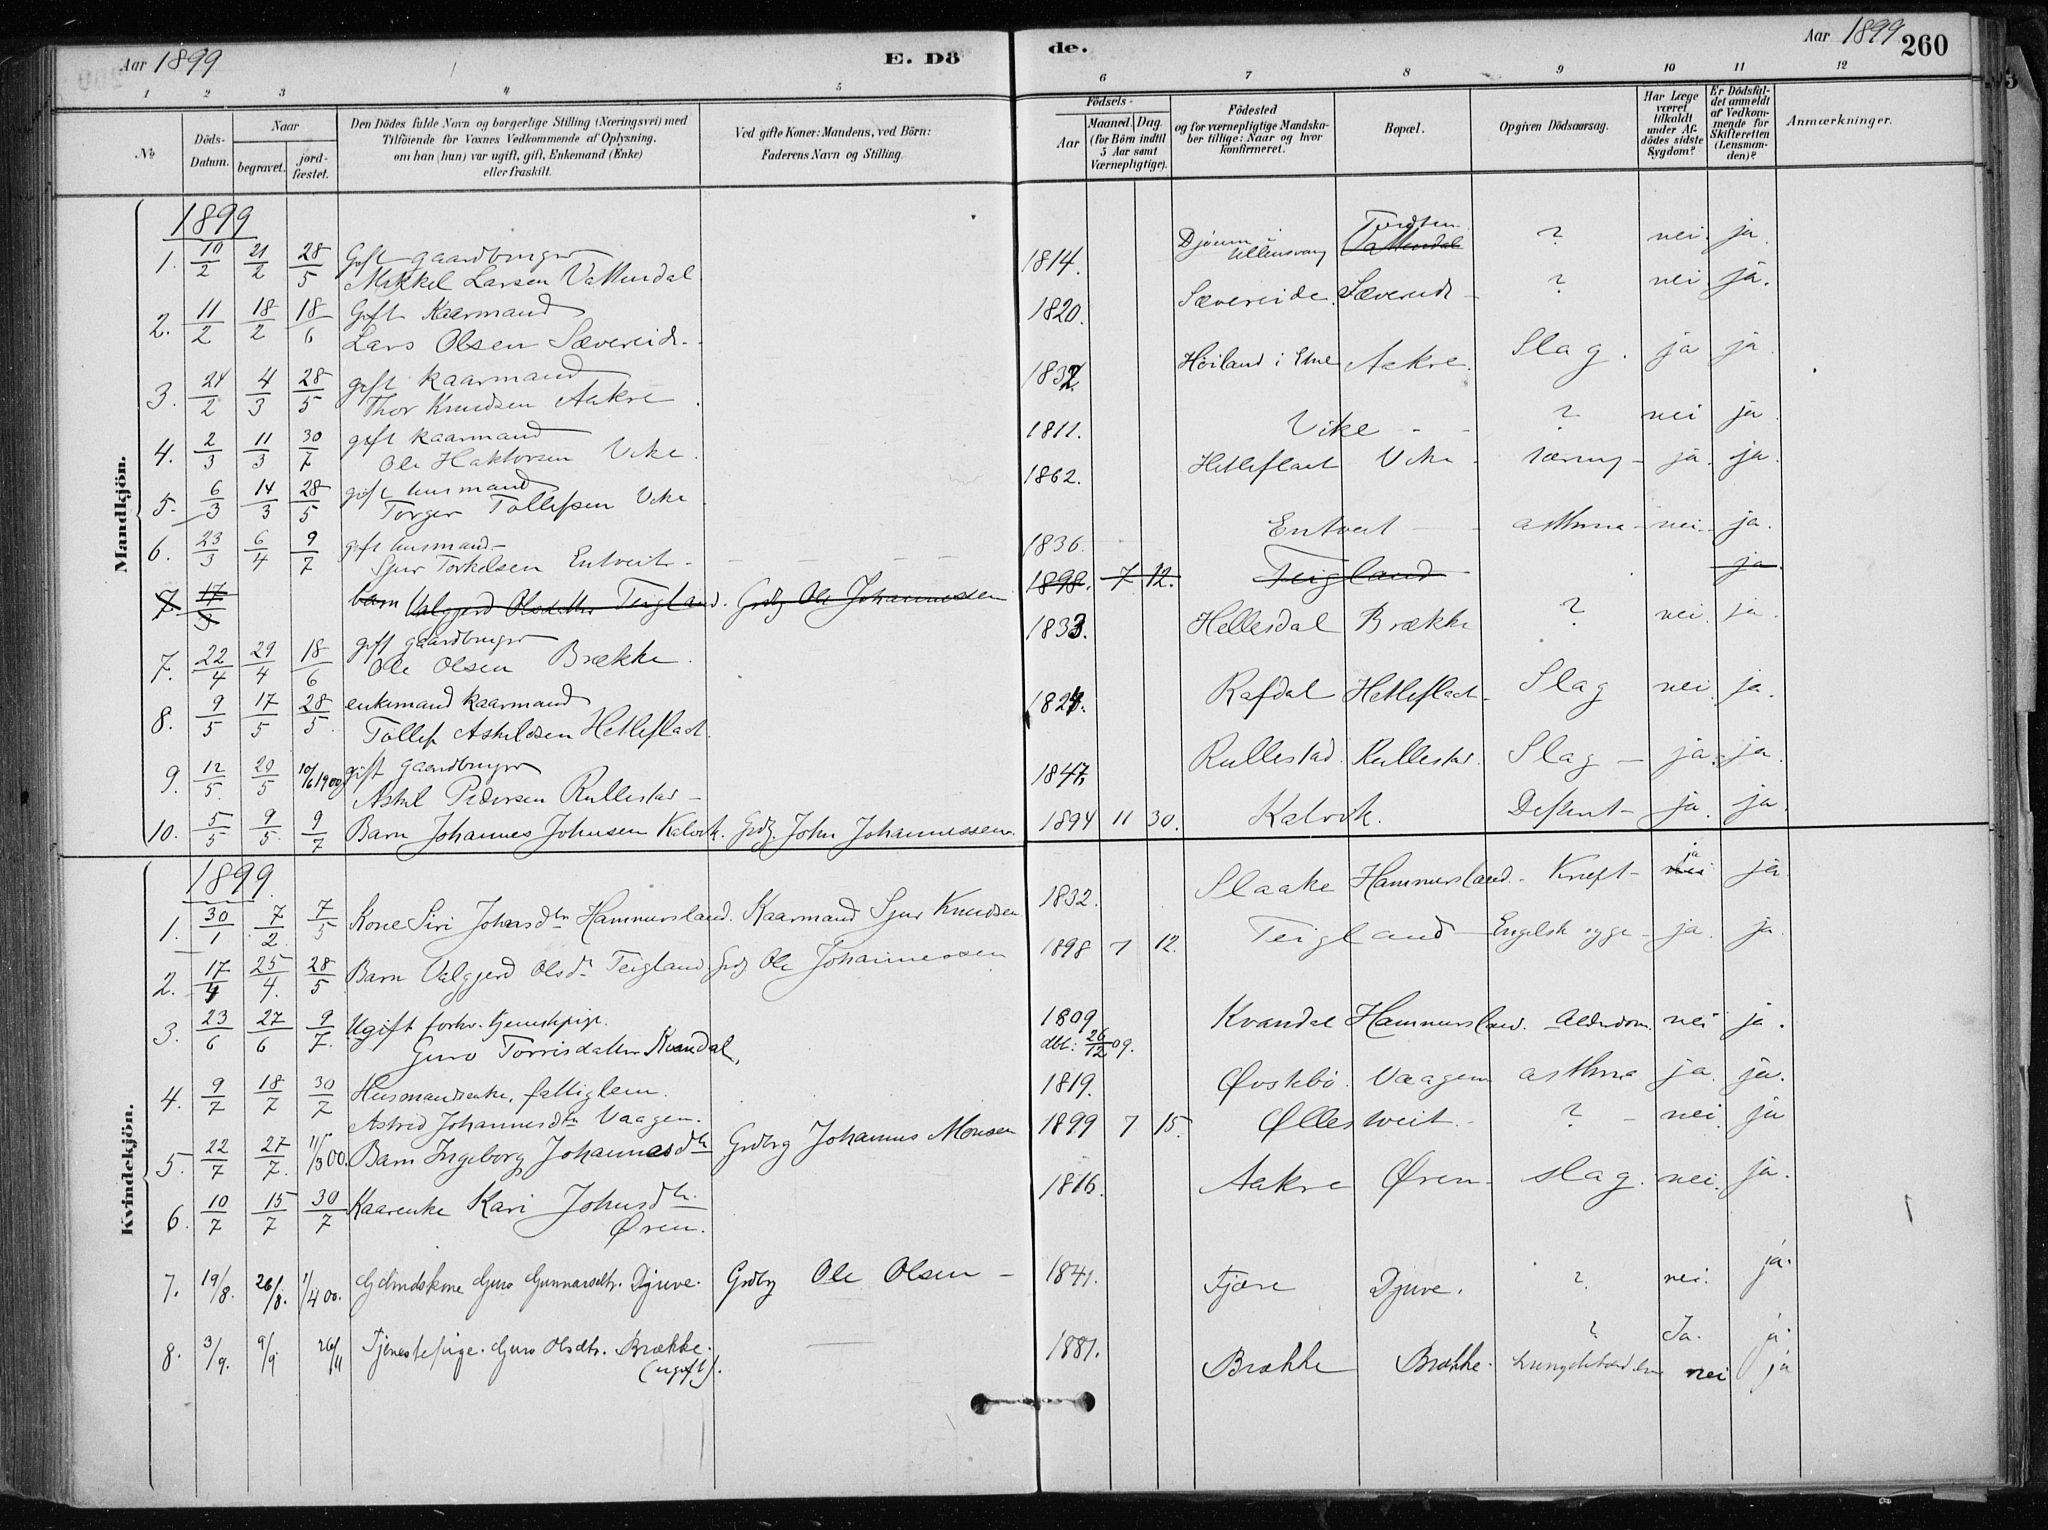 Aar 1899
E. Dö
de.
Aar 1899
260
1 2 3 4 5 6 7 8 9 10 11 12
No
Döds-Datum.
Naar
begravet.
jord-fæstet.
Den Dödes fulde Navn og borgerlige Stilling (Næringsvei) med
Tilföiende for Voxnes Vedkommende af Oplysning,
om han (hun) var ugift, gift, Enkemand (Enke)
eller fraskilt.
Ved gifte Koner: Mandens, ved Börn:
Faderens Navn og Stilling.
Födsels-
Aar
Maaned. Dag.
(for Börn indtil
5 Aar samt
Værnepligtige).
Födested
og for værnepligtige Mandska-
ber tillige: Naar og hvor
konfirmeret.
Bopæl.
Opgiven Dödsaarsag.
Har Læge
været
tilkaldt
under Af-
dödes sidste
Sygdom?
Er Dödsfal-
det anmeldt
af Vedkom-
mende for
Skifteretten
(Lensman-
den)?
Anmærkninger.
Mandkjön.
1899
1. 10/2 21/2 28/5 Gift gaardbruger Mikkel Larsen Vattendal 1814. Djönne i Ullensvang Vattendal ? nei. ja.
2. 11/2 18/2 18/6 Gift Kaarmand Lars Olsen Sævereide. 1820. Sævereide. Sævereide ? nei ja.
3. 24/2 4/3 28/5 gift kaarmand Thor Knudsen Aakre. 1832. Höiland i Etne Aakre. Slag. ja ja
4. 2/3 11/3 30/7 gift kaarmand Ole Haktorsen Vike. 1811. Vike - - ? nei ja.
5. 6/3 14/3 28/5 gift husmand Torger Tollefsen Vike. 1862. Hetleflaat Vike. tæring - ja. ja.
6. 23/3 6/4 9/7 gift husmand - Sjur Torkelsen Entveit. 1836. Entveit - - asthma - nei - ja.
7 17/3 barn Valgjerd Olsdatter Teigland. Grdbr Ole Johannessen 1898. 7 12. Teigland ja
7. 22/4 29/4 18/6 gift gaardbruger Ole Olsen Brække. 1833. Hellesdal Brække ? nei. ja.
8. 9/5 17/5 28/5. enkemand kaarmand Tollef Askildsen Hetleflaat. 1824. Rafdal Hetleflaat. Slag nei. ja.
9. 12/5. 20/5 10/6 1900 gift gaardbruger Askil Pedersen Rullestad - 1847. Rullestad. Rullestad. Slag - ja. ja.
10. 5/5 9/5. 9/7 Barn Johannes Johnsen Kalvik. Grdbr. John Johannessen. 1894 11 30. Kalvik. Difterit - ja. ja.
Kvindekjön.
1899.
1. 30/1 7/2. 7/5 Kone Siri Johnsdtr Hammersland. Kaarmand Sjur Knudsen 1832. Slaake Hammersland. Kræft - ja nei ja
2. 17/4 25/4. 28/5 Barn Valgjerd Olsdtr Teigland Grdbr Ole Johannessen 1898 7 12. Teigland - Engelsk syge - ja. ja.
3. 23/6 27/6 9/7. Ugift forhv. tjenestepige. Guro Torrisdatter Kvandal, 1809 dbt: 26/12 09. Kvandal Hammersland. Alderdom. nei ja.
4. 9/7 18/7 30/7 Husmandsenke, fattiglem. Astrid Johannesdtr Vaagen. 1819. Øvstebö. Vaagen asthma ja. ja.
5. 22/7 27/7. 11/3 00. Barn Ingeborg Johannesdtr Grdbrg Johannes Monsen 1899 7 15. Øllestveit. ? - nei. ja
6. 10/7 15/7 30/7 Kaarenke Kari Johnsdtr. Øren. 1816. Aakre Øren - slag. nei. ja.
7. 19/8. 26/8. 1/4 00. Gdmdskone Guro Gunnarsdtr. Djuve. Grdbrg Ole Olsen - 1841. Fjære Djuve. ? nei. ja.
8. 3/9. 9/9 26/11 Tjenestepige. Guro Olsdtr. Brække. (ugift). 1881. Brække Brække. ? Ja. nei ja ja